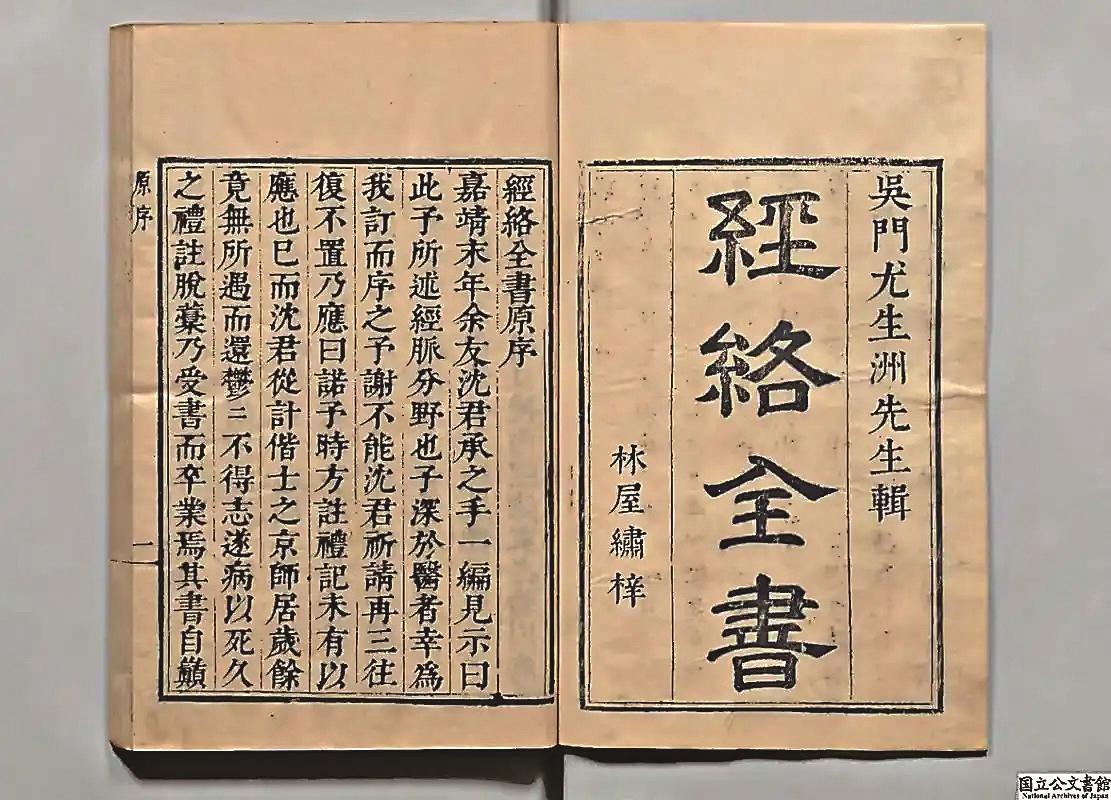 吳門尤生洲先生輯
經絡全書
林屋繡梓
經絡全書原序
嘉靖末年余友沈君承之手一編見示曰
此予所述經脈分野也子深於醫者幸為
我訂而序之予謝不能沈君祈請再三往
復不置乃應曰諾予時方註禮記未有以
應也巳而沈君從計偕士之京師居歲餘
竟無所遇而還鬱〻不得志遂病以死久
之禮註脫藳乃受書而卒業焉其書自巔
原序
一
国立公文書館
National Archives of Japan